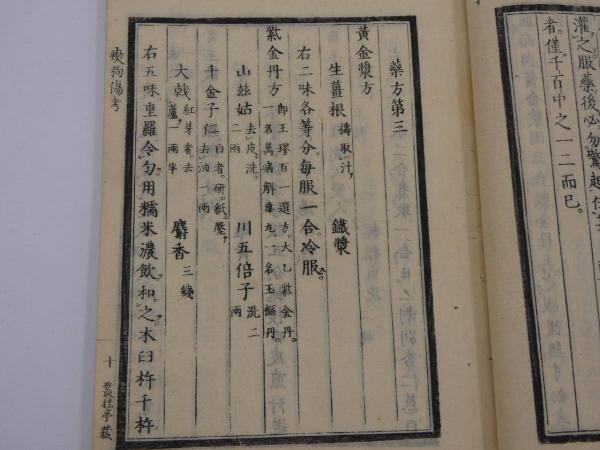 灌之服藥後必勿驚起
者僅千百中之一二而已
藥方第三
黃金漿方
生薑根搗取汁 鐵漿
右二味各等分每服一合冷服
紫金丹方即王璆百一選方太乙紫金丹一名萬病解毒丸一名玉樞丹
山玆姑去皮洗二兩 川五倍子洗二兩
千金子仁白者研紙壓去油一兩
大戟紅芽者去蘆一兩半 麝香三錢
右五味重羅令勻用糯米濃飲和之木臼杵千杵
瘈狗傷考
十 聚桂亭藏